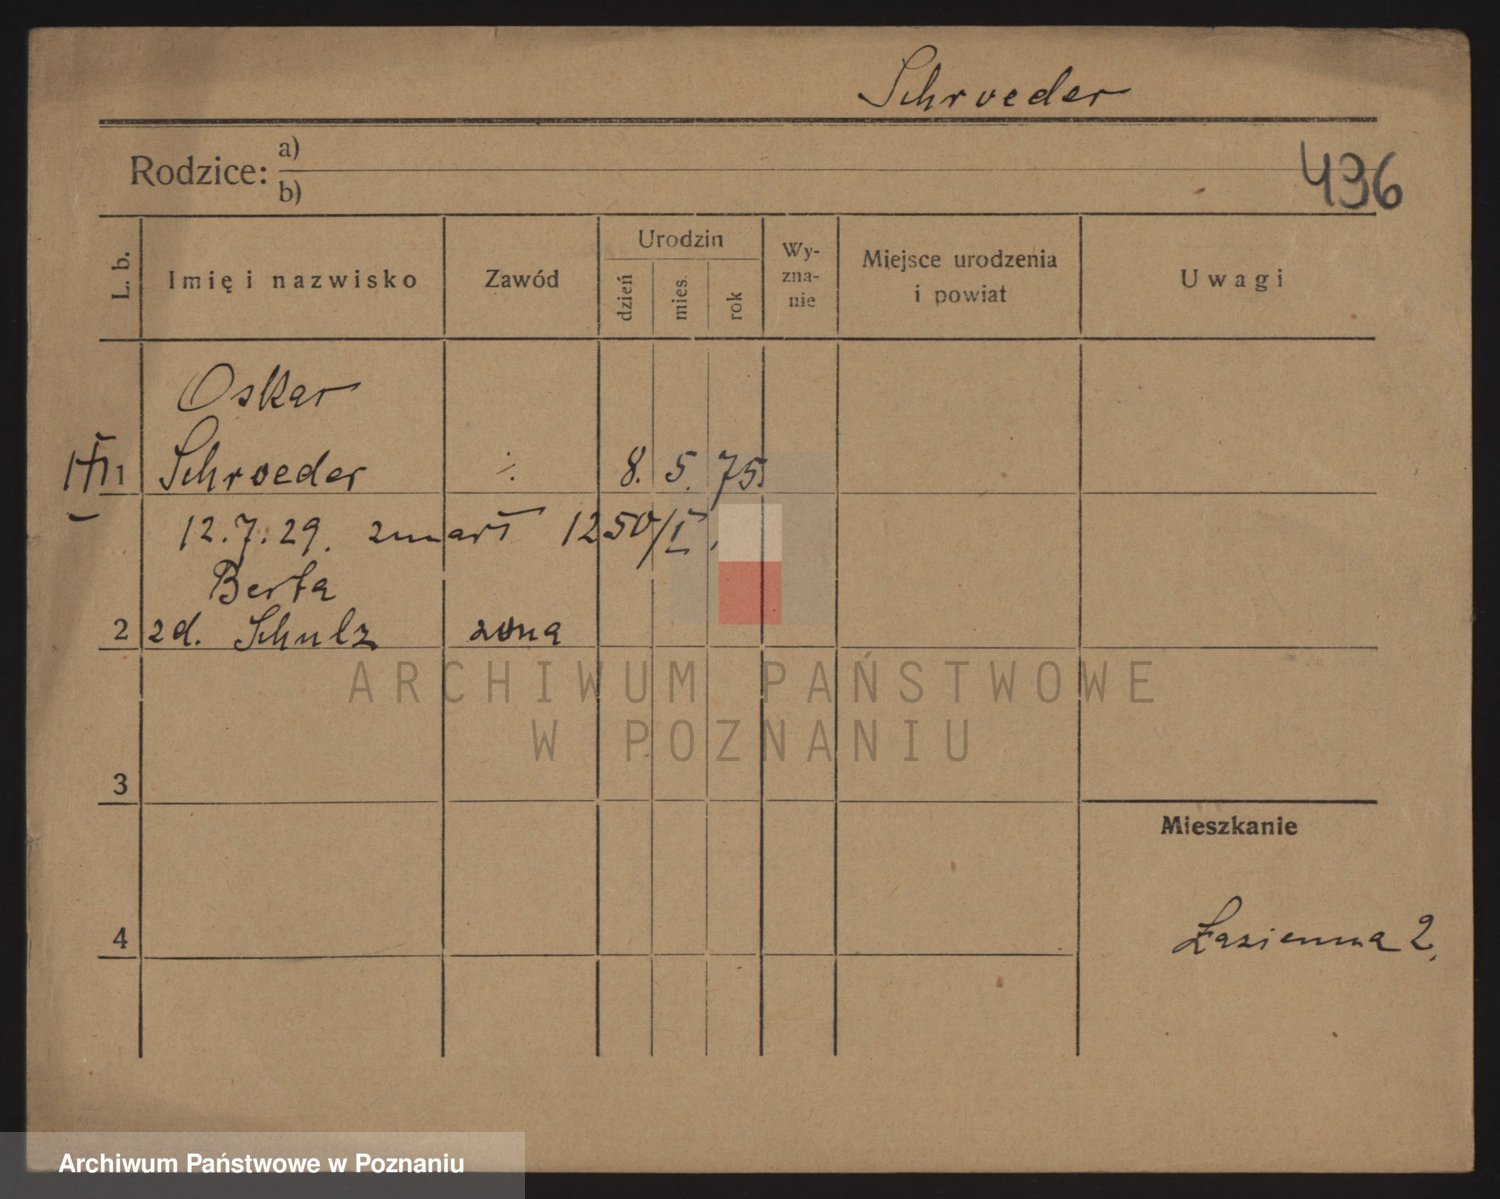 Schroeder
Rodzice: a)
b)
436
L. b.
Imię i nazwisko
Zawód
Urodzin
dzień
mies.
rok
Wy-
zna-
nie
Miejsce urodzenia
i powiat
Uwagi
Oskar
1 Schroeder ·/. 8. 5. 75.
12.7.29. zmarł 1250/I
Berta
2 zd. Schulz żona
3
Mieszkanie
4
Łazienna 2.
ARCHIWUM PAŃSTWOWE
W POZNANIU
Archiwum Państwowe w Poznaniu